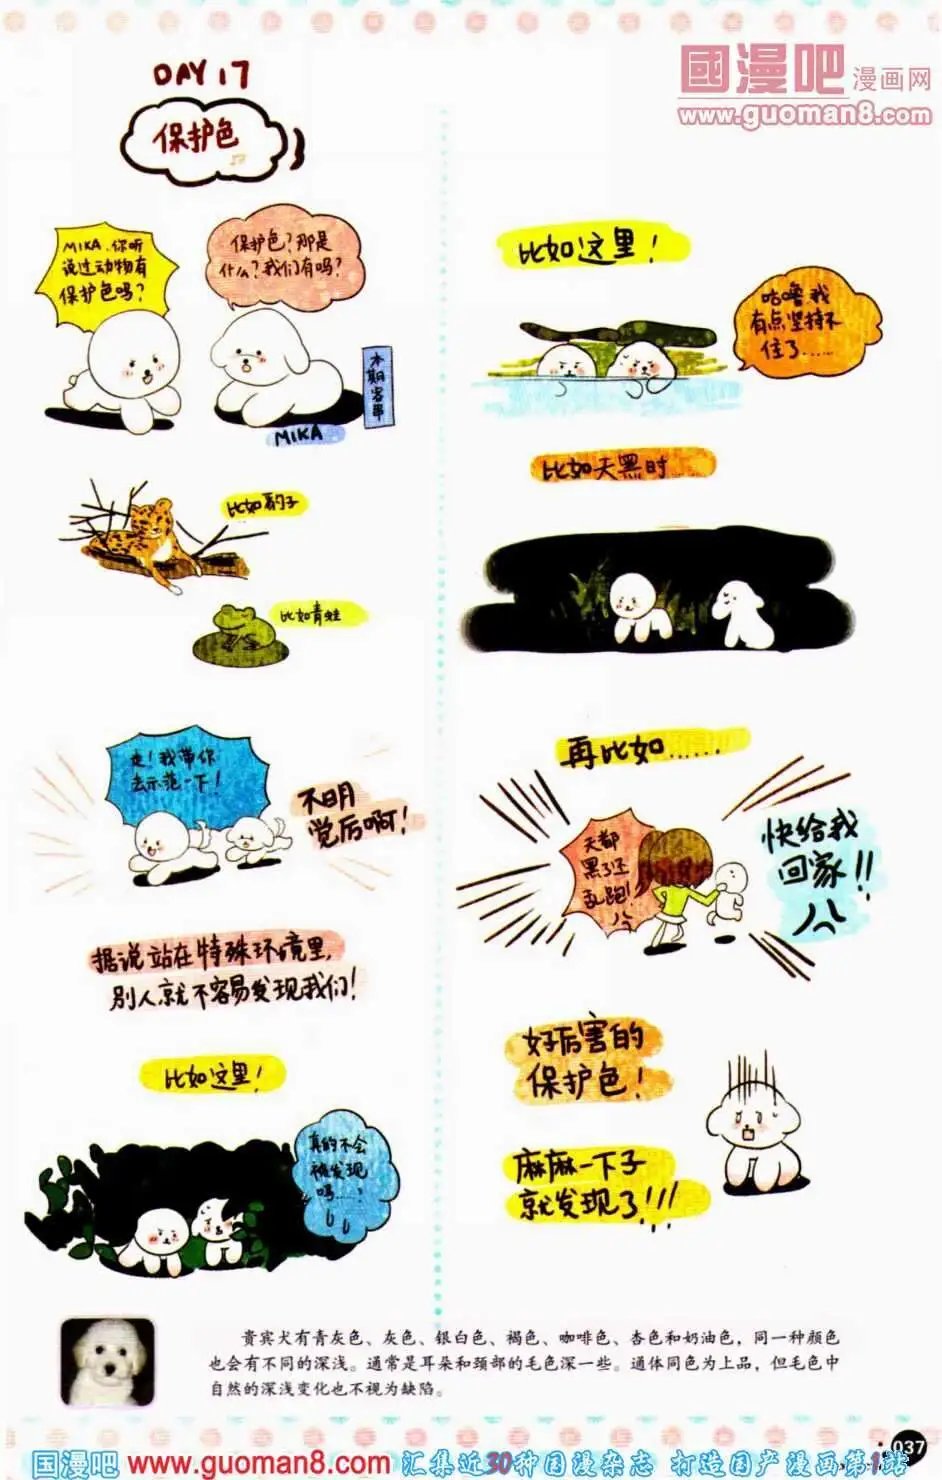 國漫吧漫画网
www.guoman8.com
DAY 17
保护色
MIKA,你听
说过动物有
保护色吗?
保护色?那是
什么?我们有吗?
本期客串
MIKA
比如豹子
比如青蛙
走!我带你
去示范一下!
不明
觉厉啊!
据说站在特殊环境里,
别人就不容易发现我们!
比如这里!
真的不会
被发现
吗……?
比如这里!
咕噜,我
有点坚持不
住了……
比如天黑时
再比如……
天都
黑了还
乱跑!
快给我
回家!!
好厉害的
保护色!
麻麻一下子
就发现了!!!
贵宾犬有青灰色、灰色、银白色、褐色、咖啡色、杏色和奶油色,同一种颜色
也会有不同的深浅。通常是耳朵和颈部的毛色深一些。通体同色为上品,但毛色中
自然的深浅变化也不视为缺陷。
037
国漫吧 www.guoman8.com 汇集近30种国漫杂志 打造国产漫画第1站